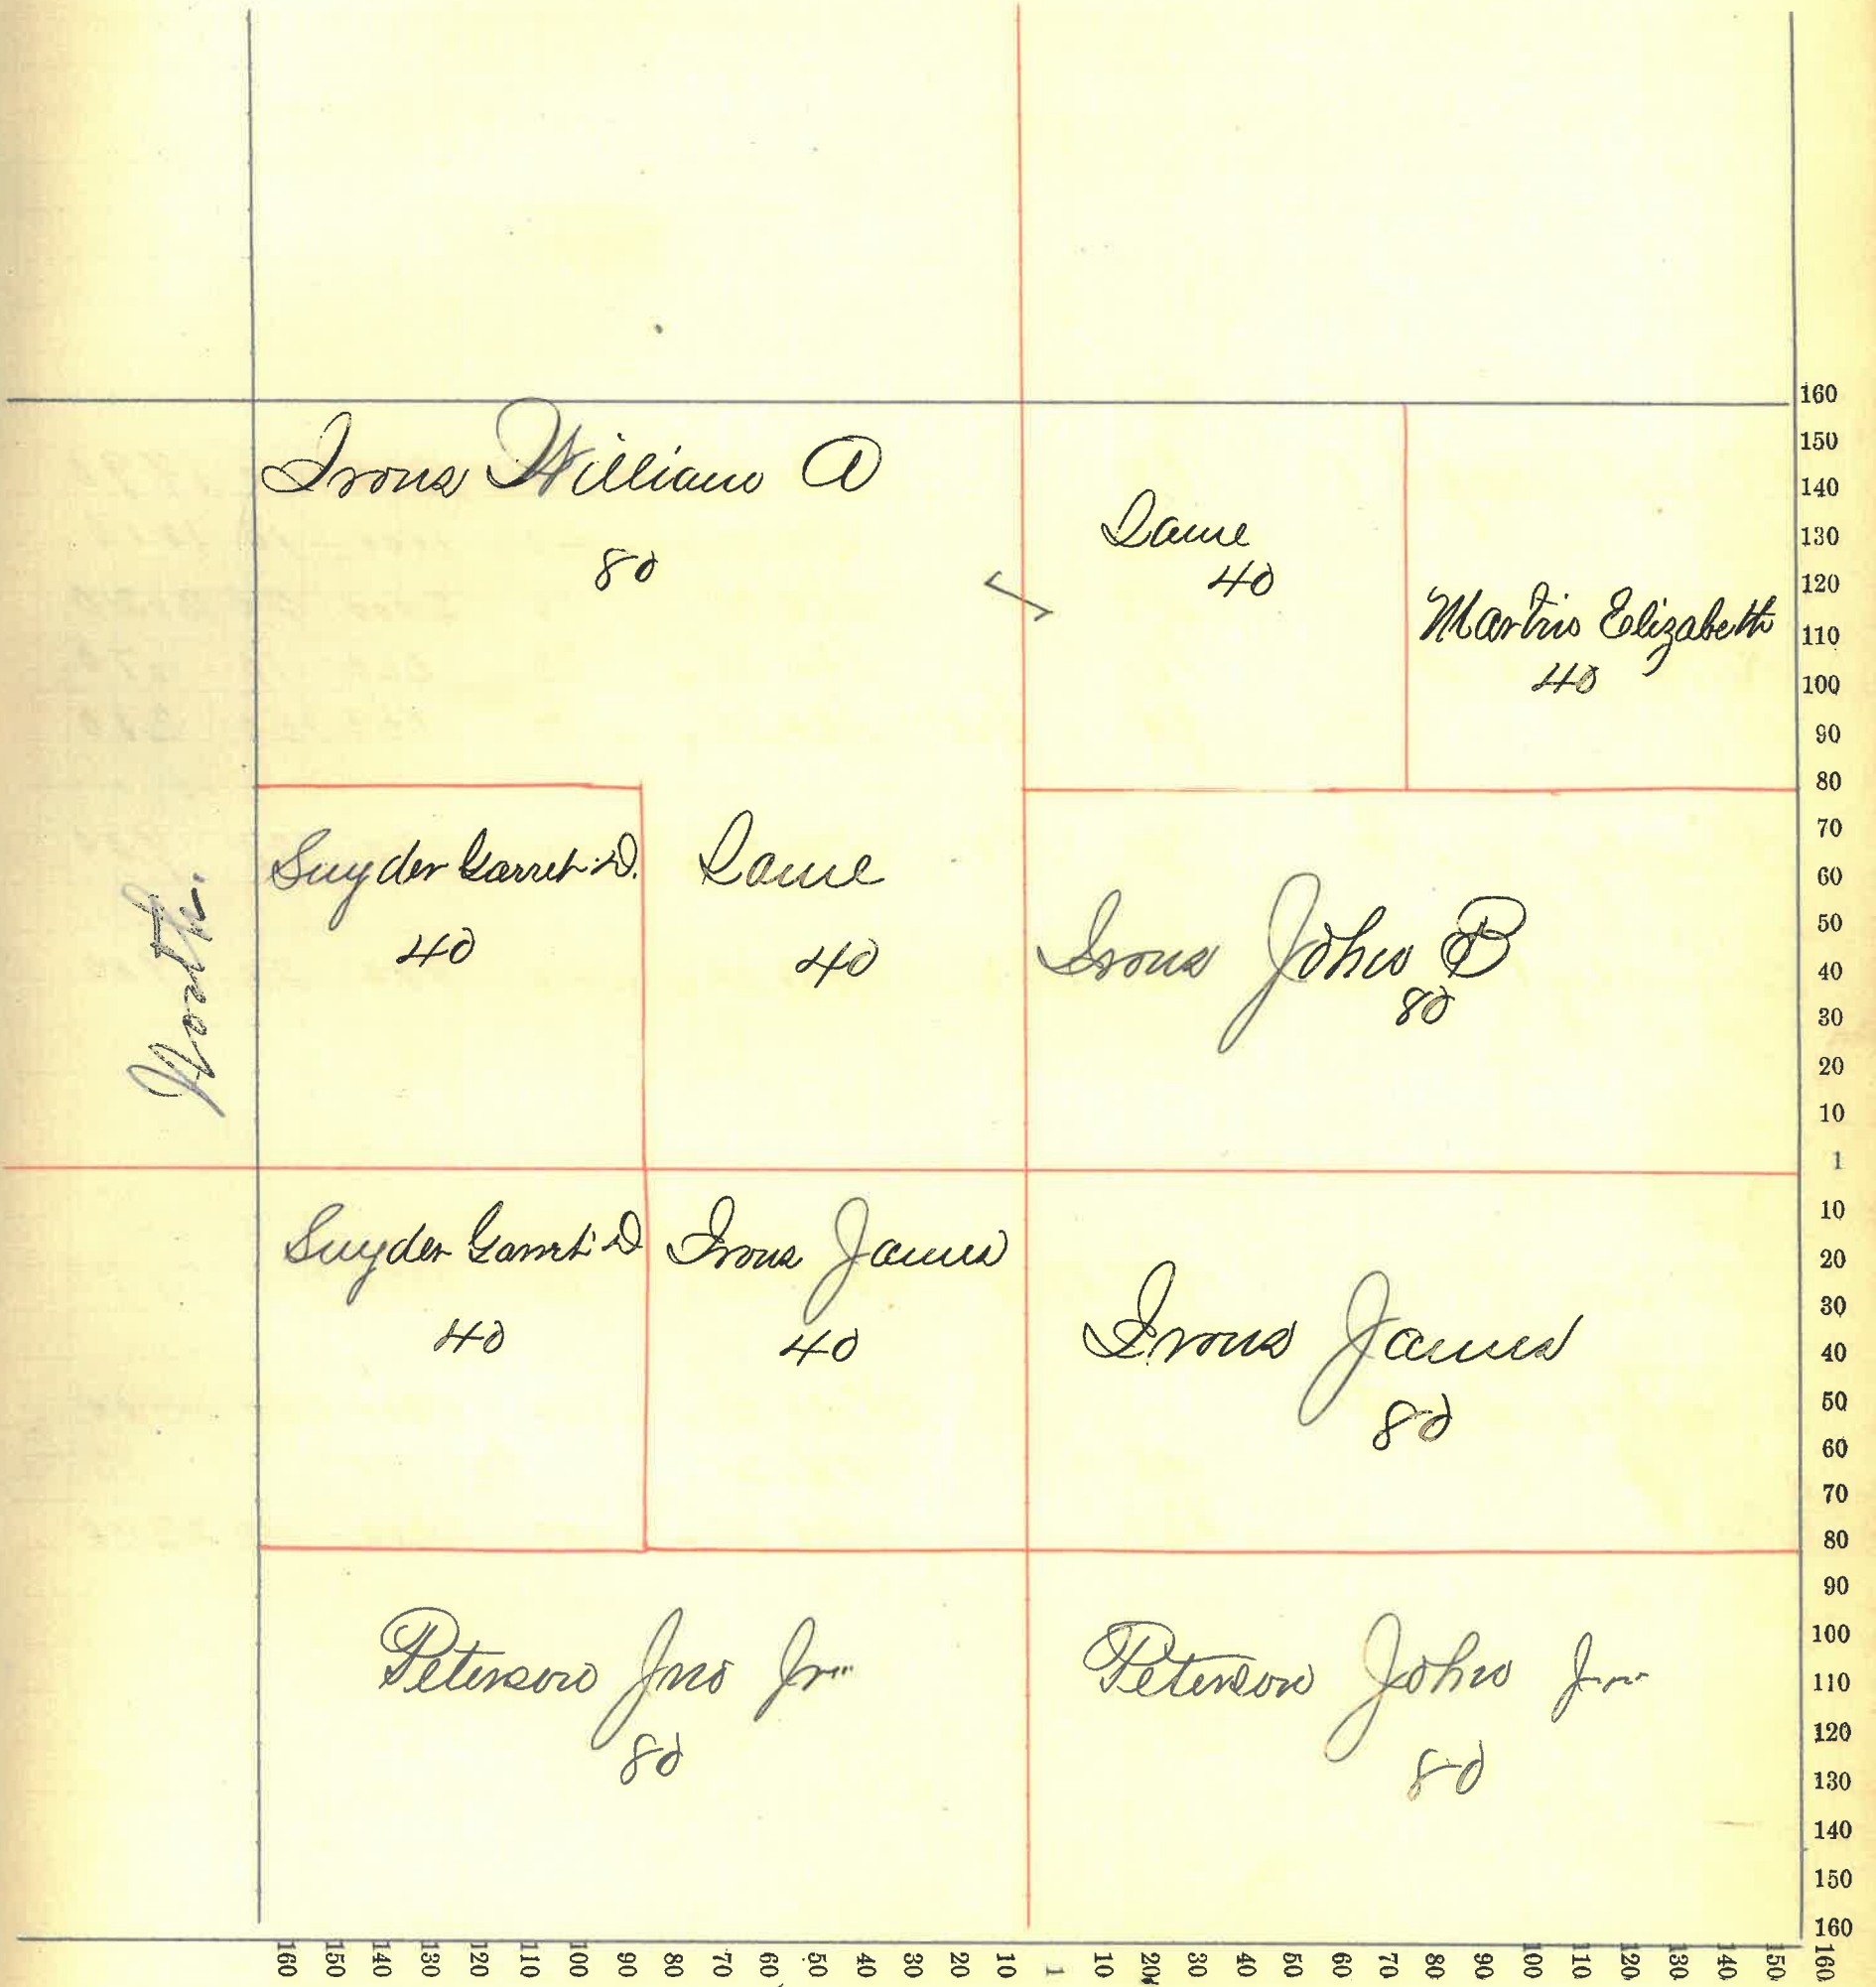 Irons William A
80
Same
40
Martin Elizabeth
40
Snyder Garret D.
40
Same
40
Irons John B
80
North.
Snyder Garret D
40
Irons James
40
Irons James
80
Peterson Jno Jr
80
Peterson John Jr
80
160
150
140
130
120
110
100
90
80
70
60
50
40
30
20
10
1
10
20
30
40
50
60
70
80
90
100
110
120
130
140
150
160
160 150 140 130 120 110 100 90 80 70 60 50 40 30 20 10 1 10 20 30 40 50 60 70 80 90 100 110 120 130 140 150 160